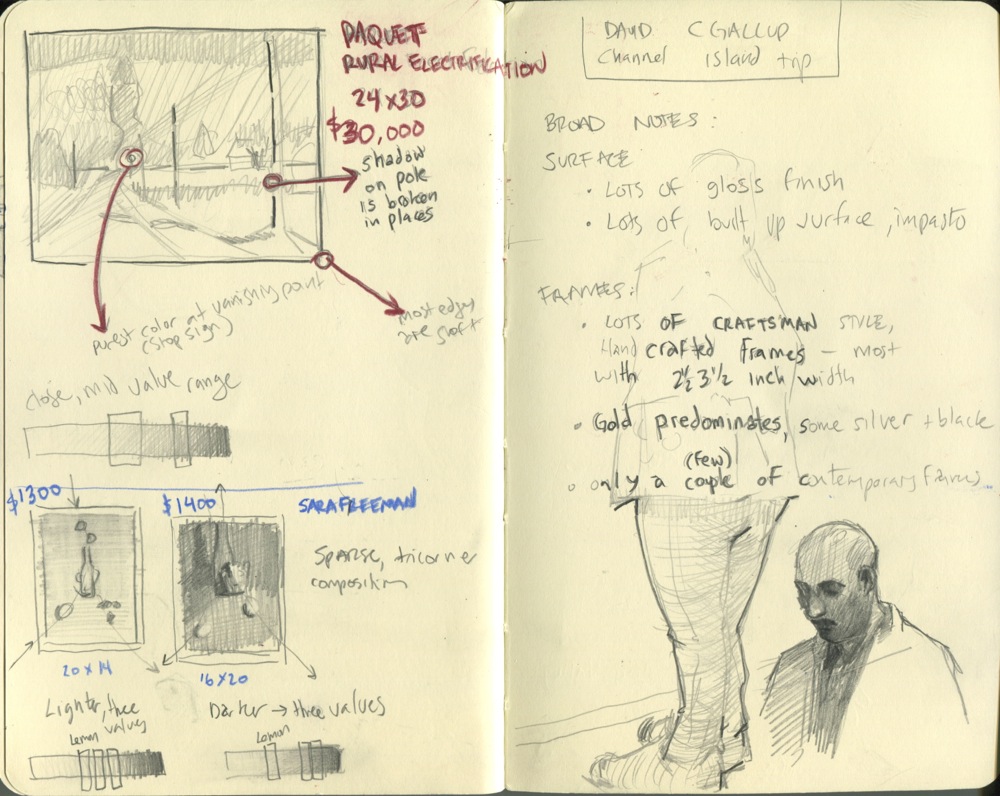 PAQUET
RURAL ELECTRIFICATION
24x30
$30,000
shadow
on pole
is broken
in places
purest color at vanishing point
(stop sign)
most edges
are soft
close, mid value range
$1300
$1400
SARA FREEMAN
Sparse, tricorner
composition
20 x 14
16 x 20
Lighter, three
values
Lemon
Darker → three values
Lemon
DAVID C GALLUP
Channel Island trip
BROAD NOTES:
SURFACE
• LOTS OF gloss finish
• LOTS OF, built up surface, impasto
FRAMES:
• LOTS OF CRAFTSMAN STYLE,
Hand crafted frames — most
with 2½ 3½ inch width
• Gold predominates, some silver + black
(few)
• only a couple of contemporary frames